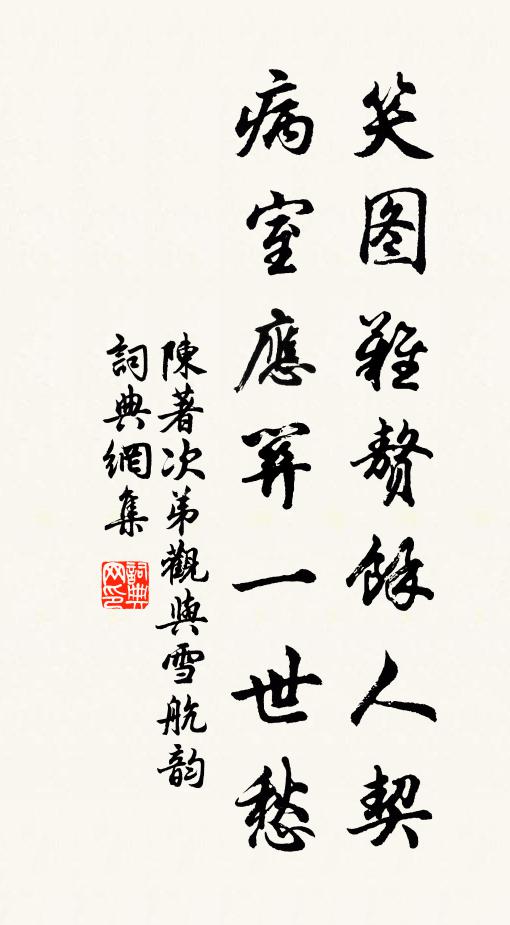 笑图難贅餘人契
病室應一世愁
陳著次弟觀與雪航韵
詞典網集
詞典网印